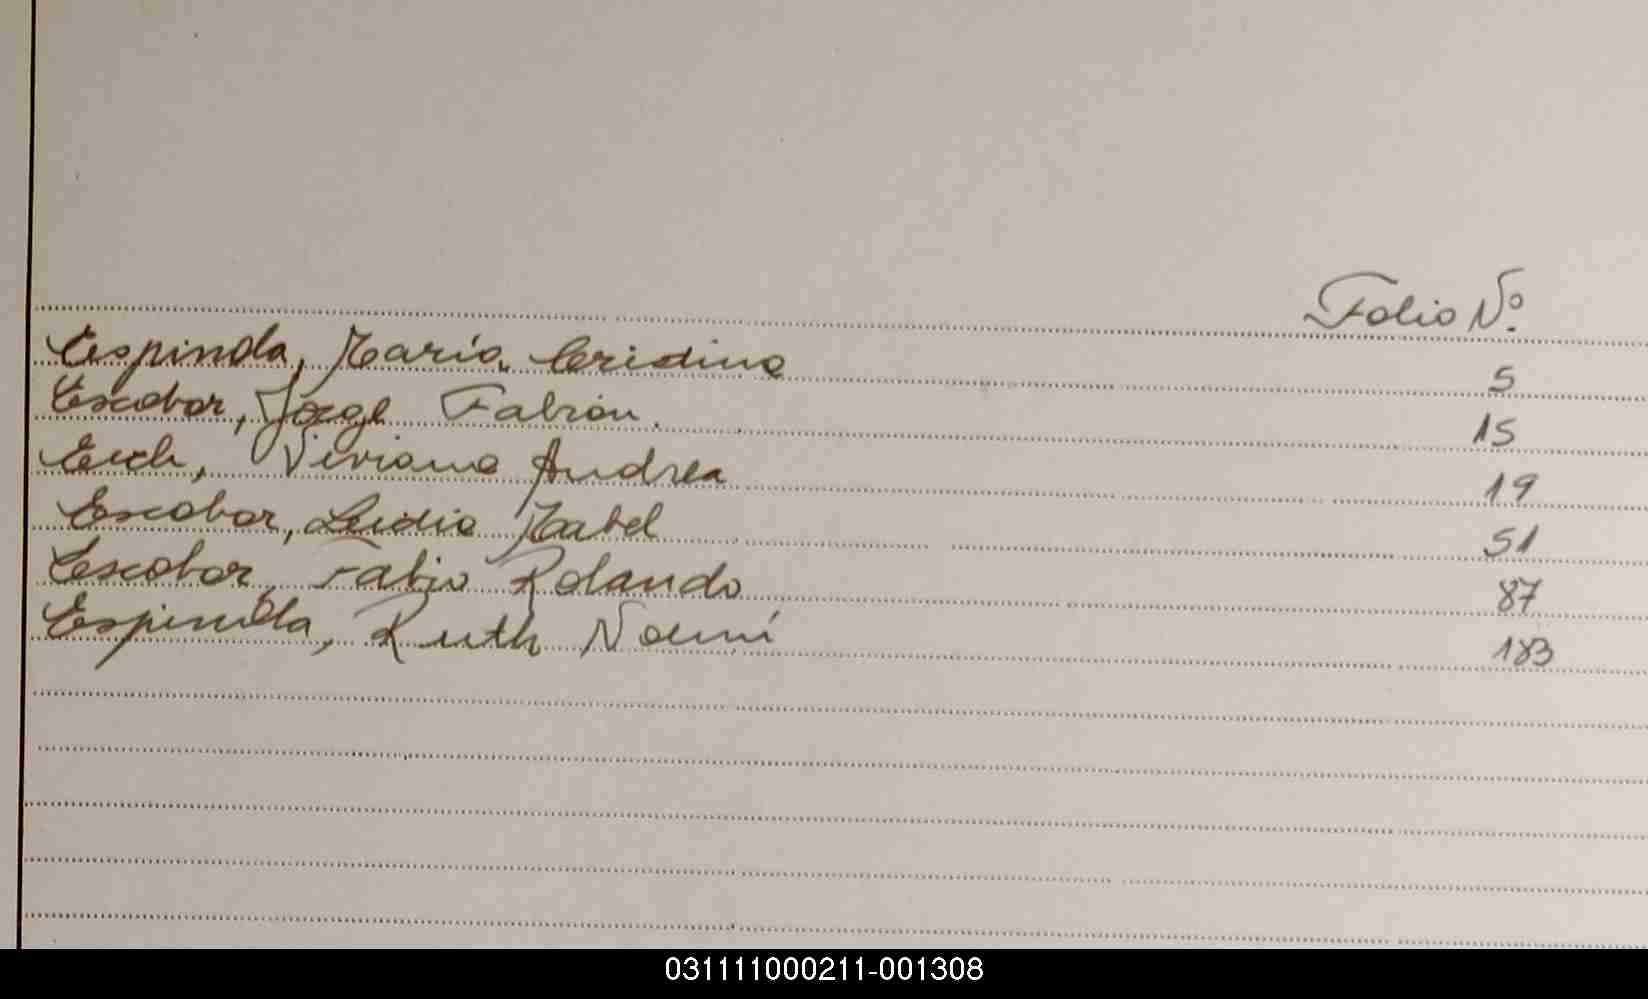 Folio Nº
Espindola, María Cristina 5
Escobar, Jorge Fabián. 15
Eich, Viviana Andrea 19
Escobar, Lidia Mabel 51
Escobar, Fabio Rolando 87
Espindola, Ruth Noemí 183
031111000211-001308